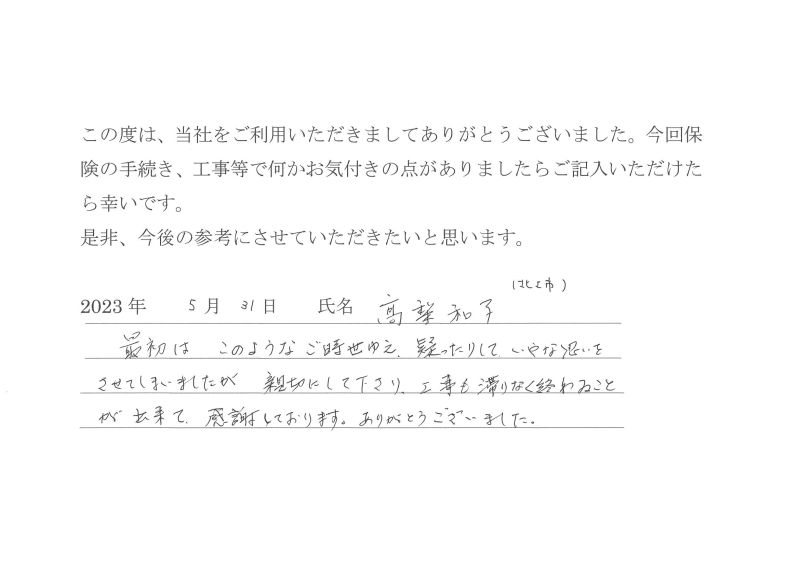 この度は、当社をご利用いただきましてありがとうございました。今回保
険の手続き、工事等で何かお気付きの点がありましたらご記入いただけた
ら幸いです。
是非、今後の参考にさせていただきたいと思います。
(北上市)
2023年 5月 31日 氏名 高梨和子
最初は このようなご時世ゆえ、疑ったりして、いやな思いを
させてしまいましたが 親切にして下さり、工事も滞りなく終わること
が出来て、感謝しております。ありがとうございました。